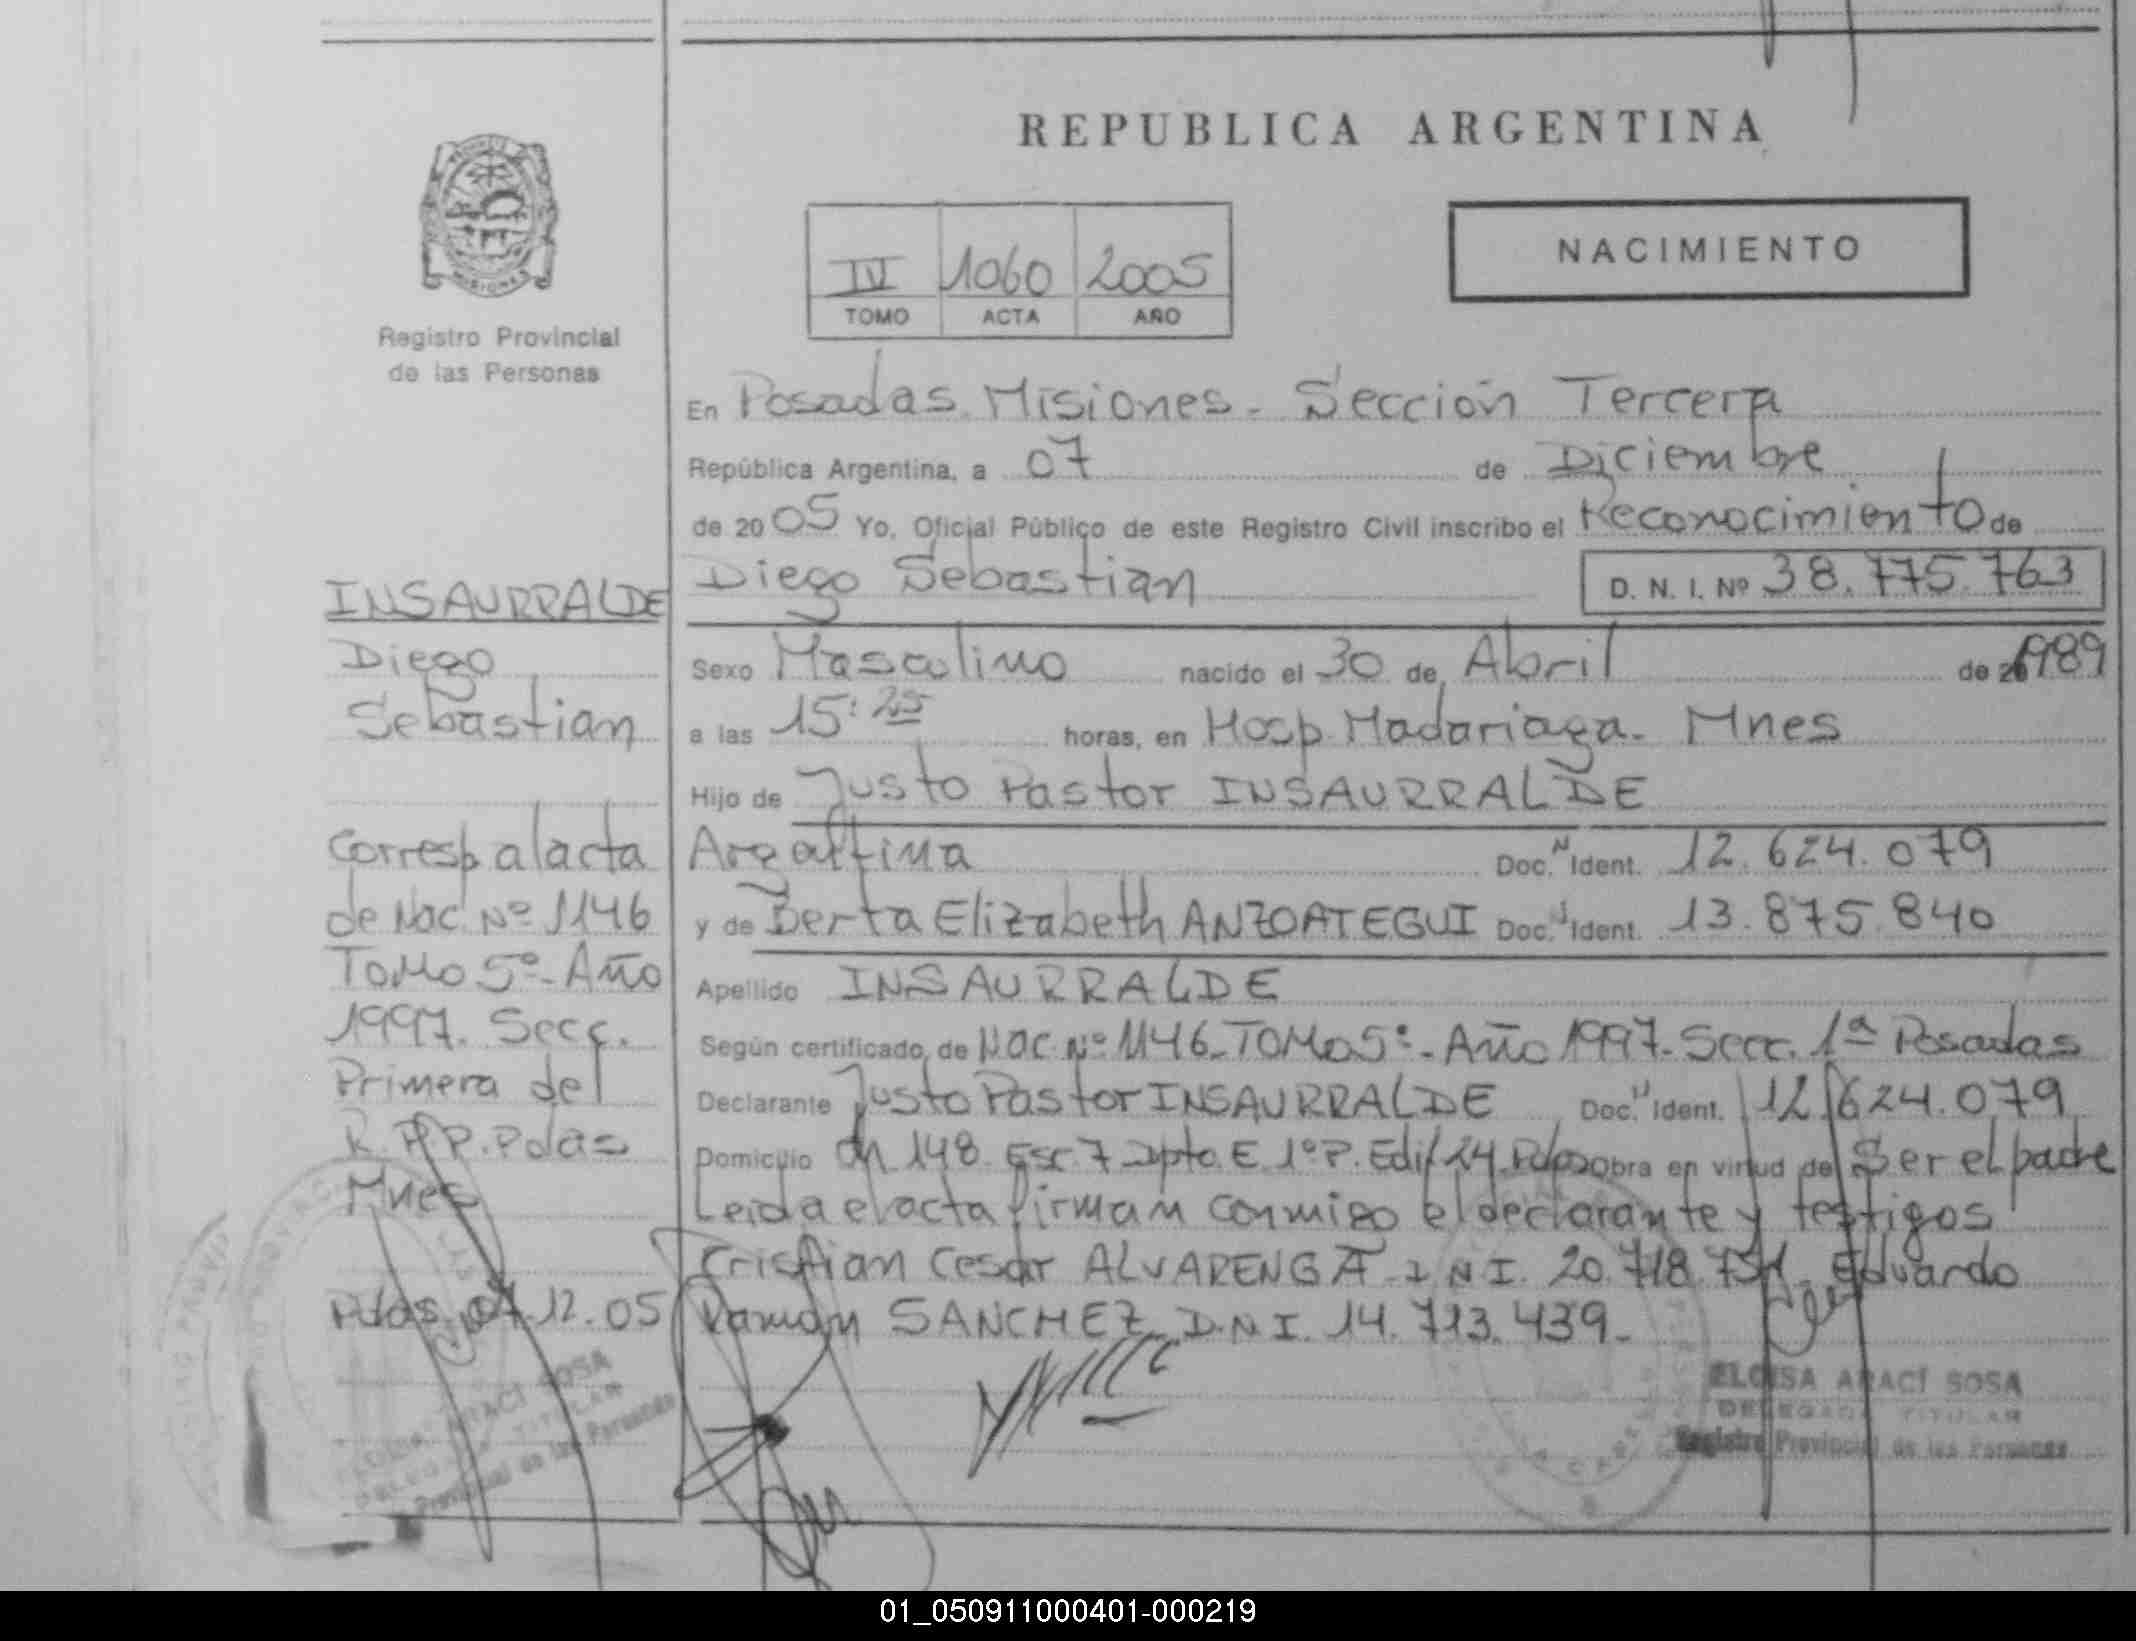 REPUBLICA ARGENTINA
NACIMIENTO
IV 1060 2005
TOMO ACTA AÑO
MISIONES
Registro Provincial
de las Personas
En Posadas Misiones - Sección Tercera
República Argentina, a 07 de Diciembre
de 2005 Yo, Oficial Público de este Registro Civil inscribo el Reconocimiento de
Diego Sebastian D. N. I. Nº 38.775.763
Sexo Masculino nacido el 30 de Abril de 1989
a las 15:25 horas, en Hosp. Madariaga - Mnes
Hijo de Justo Pastor INSAURRALDE
Argentina Doc. N Ident. 12.624.079
y de Berta Elizabeth ANZOATEGUI Doc. N Ident. 13.875.840
Apellido INSAURRALDE
Según certificado de Nac. Nº 1146 - TOMO 5º - Año 1997 - Secc. 1ª Posadas
Declarante Justo Pastor INSAURRALDE Doc. N Ident. 12.624.079
Domicilio Ch 148 Esc 7 Dpto E 1º P. Edif 24 Pdas Obra en virtud de Ser el padre
Leida el acta firman conmigo el declarante y testigos
Cristian Cesar ALVARENGA D.N.I. 20.718. Eduardo
Ramon SANCHEZ D.N.I. 14.713.439 -
INSAURRALDE
Diego
Sebastian
Corresp. al acta
de Nac. Nº 1146
TOMO 5º - Año
1997. Secc.
Primera del
R.P.P. Pdas
Mnes
Pdas, 07.12.05
ARACÍ SOSA
TITULAR
Provincial de las Personas
ELOISA ARACÍ SOSA
DELEGADA TITULAR
Registro Provincial de las Personas
01_050911000401-000219